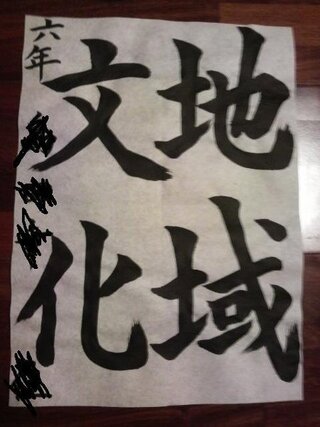 地域
文化
六年